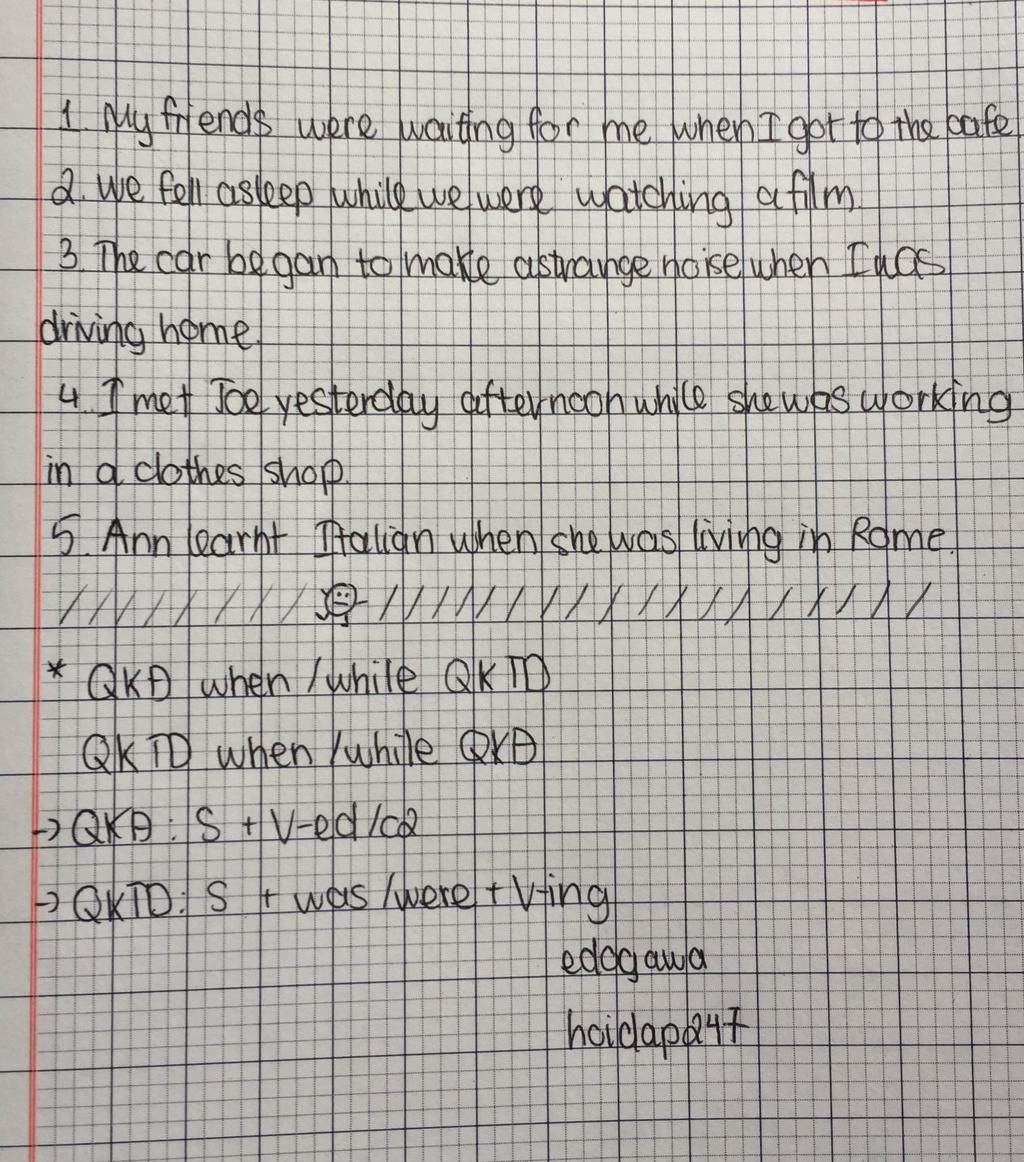 1. My friends were waiting for me when I got to the cafe
2. We fell asleep while we were watching a film.
3. The car began to make a strange noise when I was
driving home.
4. I met Joe yesterday afternoon while she was working
in a clothes shop.
5. Ann learnt Italian when she was living in Rome.
* QKĐ when / while QKTD
QKTD when / while QKĐ
→ QKĐ: S + V-ed / c2
→ QKTD: S + was / were + V-ing
edogawa
hoidap247